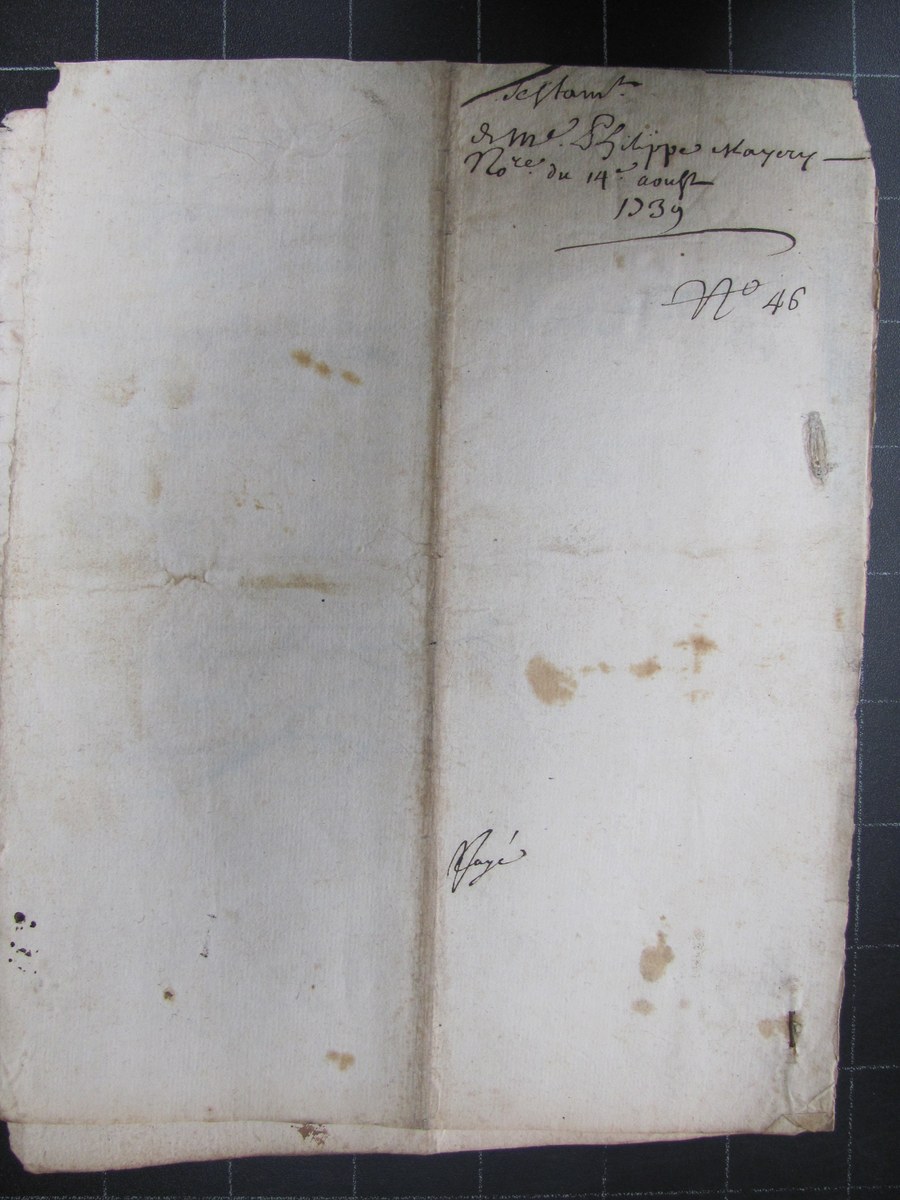 Testamt.
de Me. Philippe Mayery
Nore. du 14e aoust
1739
No 46
Payé